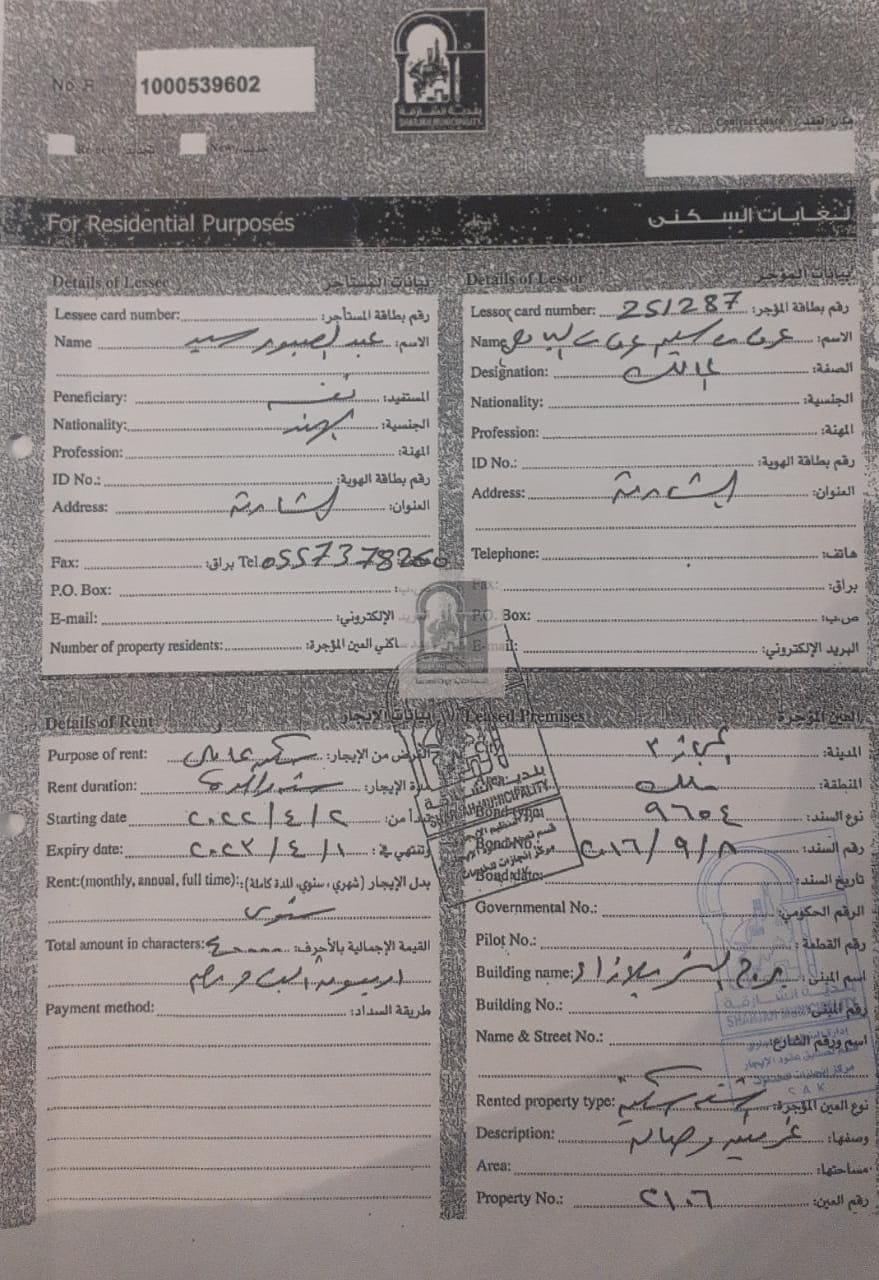 No. R 1000539602
بلدية الشارقة
SHARJAH MUNICIPALITY
Contract place / مكان العقد
Renew تجديد New جديد
For Residential Purposes لغايات السكنى
Details of Lessee بيانات المستأجر
Lessee card number: رقم بطاقة المستأجر:
Name عبد الصبور سيد الاسم:
Peneficiary: المستفيد:
Nationality: الهند الجنسية:
Profession: المهنة:
ID No.: رقم بطاقة الهوية:
Address: الشارقة العنوان:
Fax: براق: Tel 0557378260
P.O. Box:
E-mail: البريد الإلكتروني:
Number of property residents: ساكني العين المؤجرة:
Details of Lessor بيانات المؤجر
Lessor card number: 251287 رقم بطاقة المؤجر:
Name الاسم:
Designation: مالك الصفة:
Nationality: الجنسية:
Profession: المهنة:
ID No.: رقم بطاقة الهوية:
Address: الشارقة العنوان:
Telephone: هاتف:
Fax: براق:
P.O. Box: ص.ب:
E-mail: البريد الإلكتروني:
Details of Rent بيانات الإيجار
Purpose of rent: سكن عائلي الغرض من الإيجار:
Rent duration: سنة مدة الإيجار:
Starting date ٢٠٢٢/٤/٢ تبدأ من:
Expiry date: ٢٠٢٣/٤/١ وتنتهي في:
Rent:(monthly, annual, full time): بدل الإيجار (شهري، سنوي، للمدة كاملة):
سنوي
Total amount in characters: ٤٠٠٠٠ القيمة الإجمالية بالأحرف:
اربعون الف درهم
Payment method: طريقة السداد:
Leased Premises العين المؤجرة
City المدينة:
Area ملك المنطقة:
Bond type ٩٦٠٤ نوع السند:
Bond No. ٢٠١٦/٩/٨ رقم السند:
Bond date: تاريخ السند:
Governmental No.: الرقم الحكومي:
Pilot No.: رقم القطعة:
Building name: برج اسم المبنى:
Building No.: رقم المبنى:
Name & Street No.: اسم ورقم الشارع:
Rented property type: شقة سكنية نوع العين المؤجرة:
Description: غرفتين وصالة وصفها:
Area: مساحتها:
Property No.: ٢١٠٦ رقم العين:
بلدية الشارقة
SHARJAH MUNICIPALITY
بلدية الشارقة
SHARJAH MUNICIPALITY
C A K